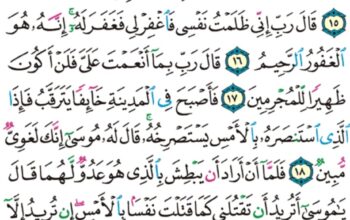 ١٥ قَالَ رَبِّ إِنِّي ظَلَمْتُ نَفْسِي فَٱغْفِرْ لِي فَغَفَرَ لَهُۥٓ ۚ إِنَّهُۥ هُوَ
ٱلْغَفُورُ ٱلرَّحِيمُ ١٦ قَالَ رَبِّ بِمَآ أَنْعَمْتَ عَلَىَّ فَلَنْ أَكُونَ
ظَهِيرًا لِّلْمُجْرِمِينَ ١٧ فَأَصْبَحَ فِي ٱلْمَدِينَةِ خَآئِفًا يَتَرَقَّبُ فَإِذَا
ٱلَّذِي ٱسْتَنصَرَهُۥ بِٱلْأَمْسِ يَسْتَصْرِخُهُۥ ۚ قَالَ لَهُۥ مُوسَىٰٓ إِنَّكَ لَغَوِىٌّ
مُّبِينٌ ١٨ فَلَمَّآ أَنْ أَرَادَ أَن يَبْطِشَ بِٱلَّذِي هُوَ عَدُوٌّ لَّهُمَا قَالَ
يَٰمُوسَىٰٓ أَتُرِيدُ أَن تَقْتُلَنِي كَمَا قَتَلْتَ نَفْسًۢا بِٱلْأَمْسِ ۖ إِن تُرِيدُ إِلَّآ